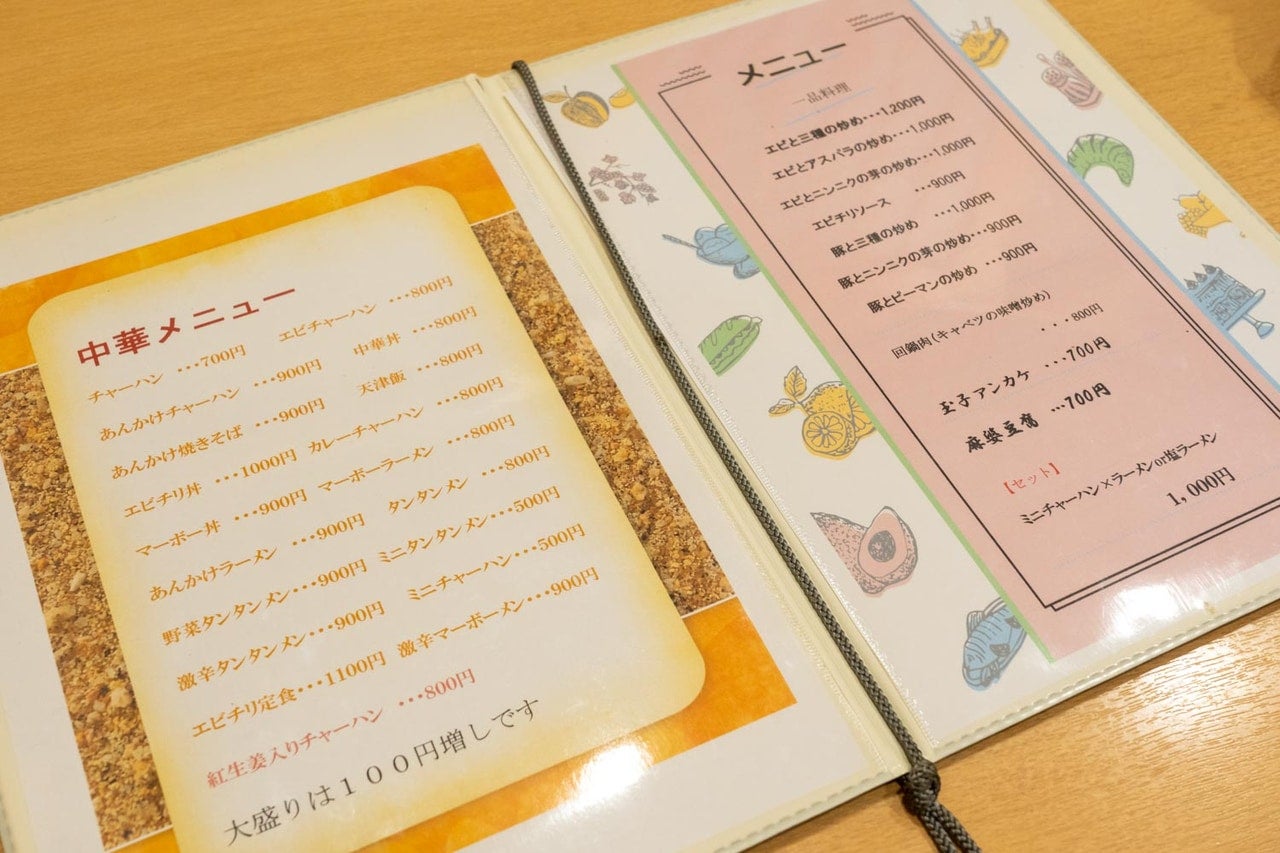 中華メニュー
チャーハン ･･･700円 エビチャーハン ･･･800円
あんかけチャーハン ･･･900円 中華丼 ･･･800円
あんかけ焼きそば ･･･900円 天津飯 ･･･800円
エビチリ丼 ･･･1000円 カレーチャーハン ･･･800円
マーボー丼 ･･･900円 マーボーラーメン ･･･800円
あんかけラーメン ･･･900円 タンタンメン ･･･800円
野菜タンタンメン･･･900円 ミニタンタンメン･･･500円
激辛タンタンメン･･･900円 ミニチャーハン･･･500円
エビチリ定食･･･1100円 激辛マーボーメン･･･900円
紅生姜入りチャーハン ･･･800円
大盛りは１００円増しです
メニュー
一品料理
エビと三種の炒め･･･1,200円
エビとアスパラの炒め･･･1,000円
エビとニンニクの芽の炒め･･･1,000円
エビチリソース ･･･900円
豚と三種の炒め ･･･1,000円
豚とニンニクの芽の炒め･･･900円
豚とピーマンの炒め ･･･900円
回鍋肉(キャベツの味噌炒め)
･･･800円
玉子アンカケ ･･･700円
麻婆豆腐 ･･･700円
【セット】
ミニチャーハン×ラーメンor塩ラーメン
1,000円